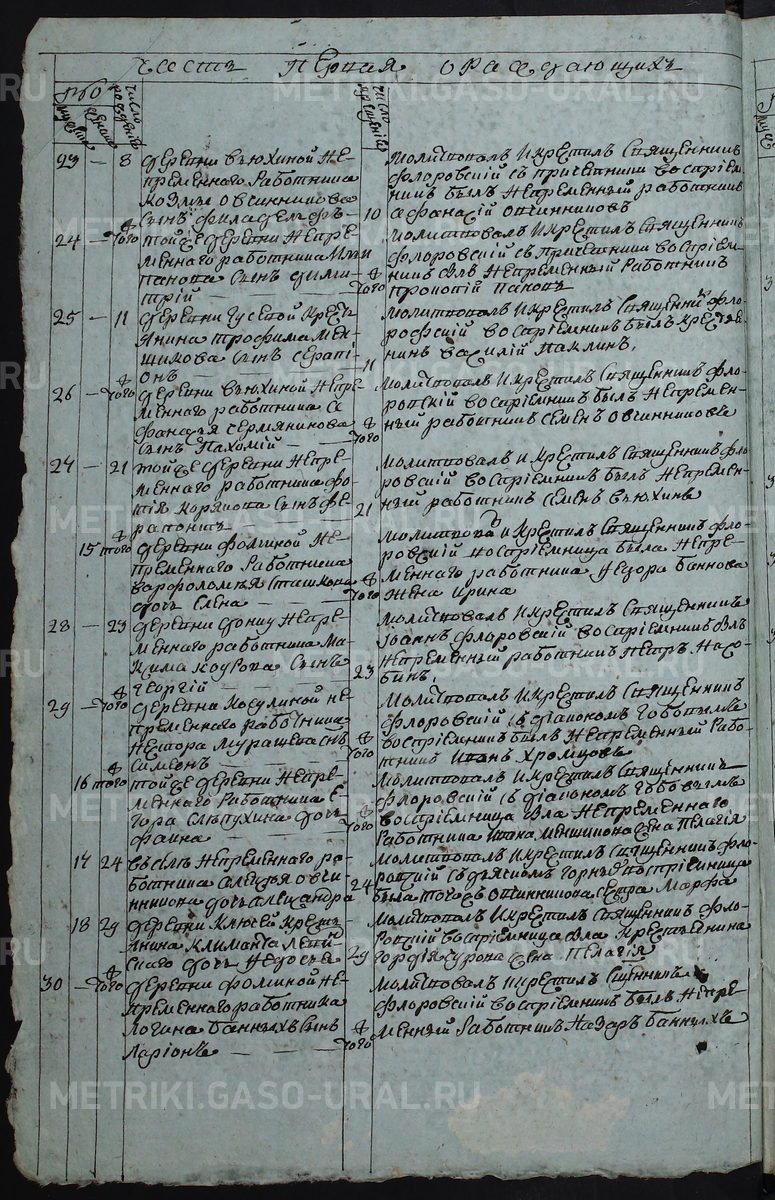 Часть первая о раждающихся
число рождений
число крещений
23 — 8 деревни Вьюхиной не-
пременнаго работника
Козмы Овчинникова
сынъ Филадельфъ —
Молитвовалъ и крестилъ священникъ
Флоровский съ причетники восприем-
никъ былъ непременный работникъ
10 Афанасий Овчинниковъ
24 — того тойже деревни непре-
меннаго работника Ильи
Панова сынъ Дими-
трий —
Молитвовалъ и крестилъ священникъ
Флоровский съ причетники восприем-
никъ былъ непременный работникъ
того Прокопий Пановъ
25 — 11 деревни Гусевой крестъ
янина Трофима Мен-
щикова сынъ Серапи-
онъ —
Молитвовалъ и крестилъ священникъ Фло-
ровский восприемникъ былъ крестья-
нинъ Василий Паклинъ,
11
26 — того деревни Вьюхиной непре
меннаго работника А
фанасья Сермяникова
сынъ Пахомий —
Молитвовалъ и крестилъ священникъ Фло-
ровский восприемникъ былъ непремен-
ный работникъ Семенъ Овчинниковъ
того
27 — 21 тойже деревни непре-
меннаго работника Фо-
тия сынъ Фе-
рапонтъ
Молитвовалъ и крестилъ священникъ Фло
ровский восприемникъ былъ непремен-
ный работникъ Семенъ Вьюхинъ
21
15 того деревни Фоминой не-
пременнаго работника
Варфоломея
дочь Елена —
Молитвовалъ и крестилъ священникъ Фло-
ровский восприемница была непре-
меннаго работника Баннова
того жена Ирина
28 — 23 деревни непре-
меннаго работника Ма-
ксима сынъ
Георгий —
Молитвовалъ и крестилъ священникъ
Иоаннъ Флоровский восприемникъ былъ
непременный работникъ Петръ
23
29 — того деревни Косулиной не-
пременнаго работника
Нестора Мурашева сынъ
Симеонъ —
Молитвовалъ и крестилъ священникъ
Флоровский съ диакономъ
восприемникъ былъ непременный рабо-
того тникъ Иванъ Хромцовъ
16 того тойже деревни непре-
меннаго работника Е
гора Слепухина дочь
Фаина —
Молитвовалъ и крестилъ священникъ
Флоровский съ диакономъ
восприемница была непременнаго
того работника Ивана жена Пелагия
17 24 въ селе непременнаго ра-
ботника Алексея Овчи-
нникова дочь Александра
Молитвовалъ и крестилъ священникъ Фло-
ровский съ дьякономъ восприемница
24 была тогожъ Овчинникова сестра Марфа
18 29 деревни Ключей крестъ
янина
дочь Федосья
Молитвовалъ и крестилъ священникъ Фло-
ровский восприемница была крестьянина
29 Гордия Сурова жена Пелагия
30 — того деревни Фоминой не-
пременнаго работника
Логина Банныхъ сынъ
Ларионъ —
Молитвовалъ и крестилъ священникъ
Флоровский восприемникъ былъ непре-
менный работникъ Назаръ Банныхъ
того
METRIKI.GASO-URAL.RU